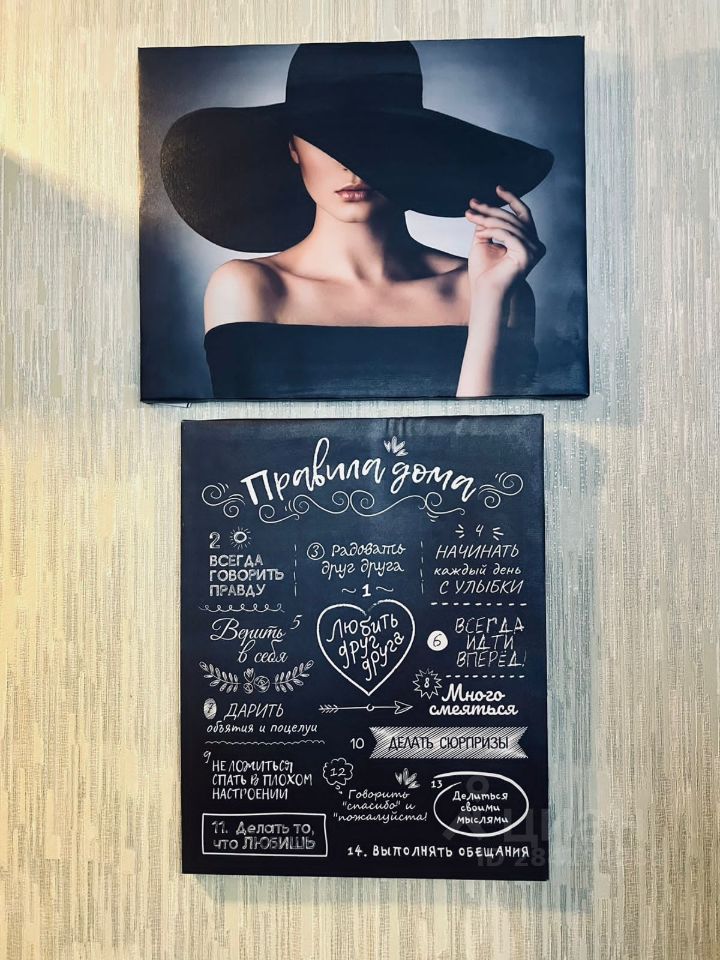 Правила дома
2
ВСЕГДА
ГОВОРИТЬ
ПРАВДУ
3 радовать
друг друга
4
НАЧИНАТЬ
каждый день
С УЛЫБКИ
~ 1 ~
Любить
друг
друга
Верить 5
в себя
6 ВСЕГДА
ИДТИ
ВПЕРЁД!
7 ДАРИТЬ
объятия и поцелуи
8 Много
смеяться
9
НЕ ЛОЖИТЬСЯ
СПАТЬ В ПЛОХОМ
НАСТРОЕНИИ
10 ДЕЛАТЬ СЮРПРИЗЫ
12
Говорить
"спасибо" и
"пожалуйста!
13
Делиться
своими
мыслями
11. Делать то,
что ЛЮБИШЬ
14. ВЫПОЛНЯТЬ ОБЕЩАНИЯ